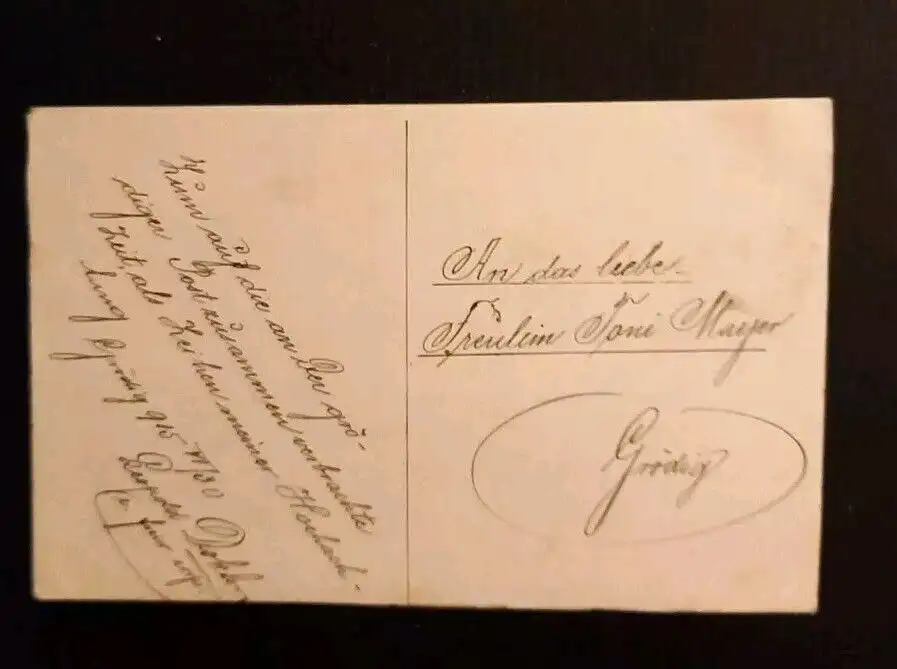 Züm aüf die an Der grö-
diger Post zusammen verbrachte
Zeit, als Zeihen meiner Hochach-
tung Grödig 915
An das liebe
Freulein Toni Mayer
Grödig